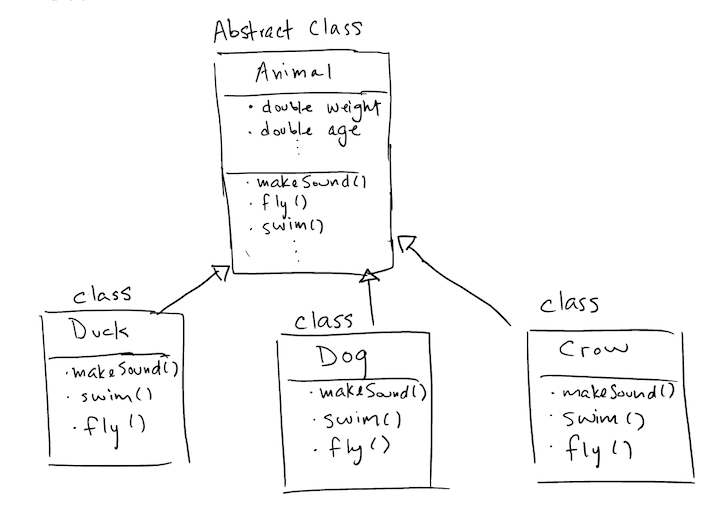 Abstract Class
Animal
· double weight
· double age
⋮
· makeSound()
· fly()
· swim()
⋮
class
Duck
· makeSound()
· swim()
· fly()
class
Dog
· makeSound()
· swim()
· fly()
class
Crow
· makeSound()
· swim()
· fly()